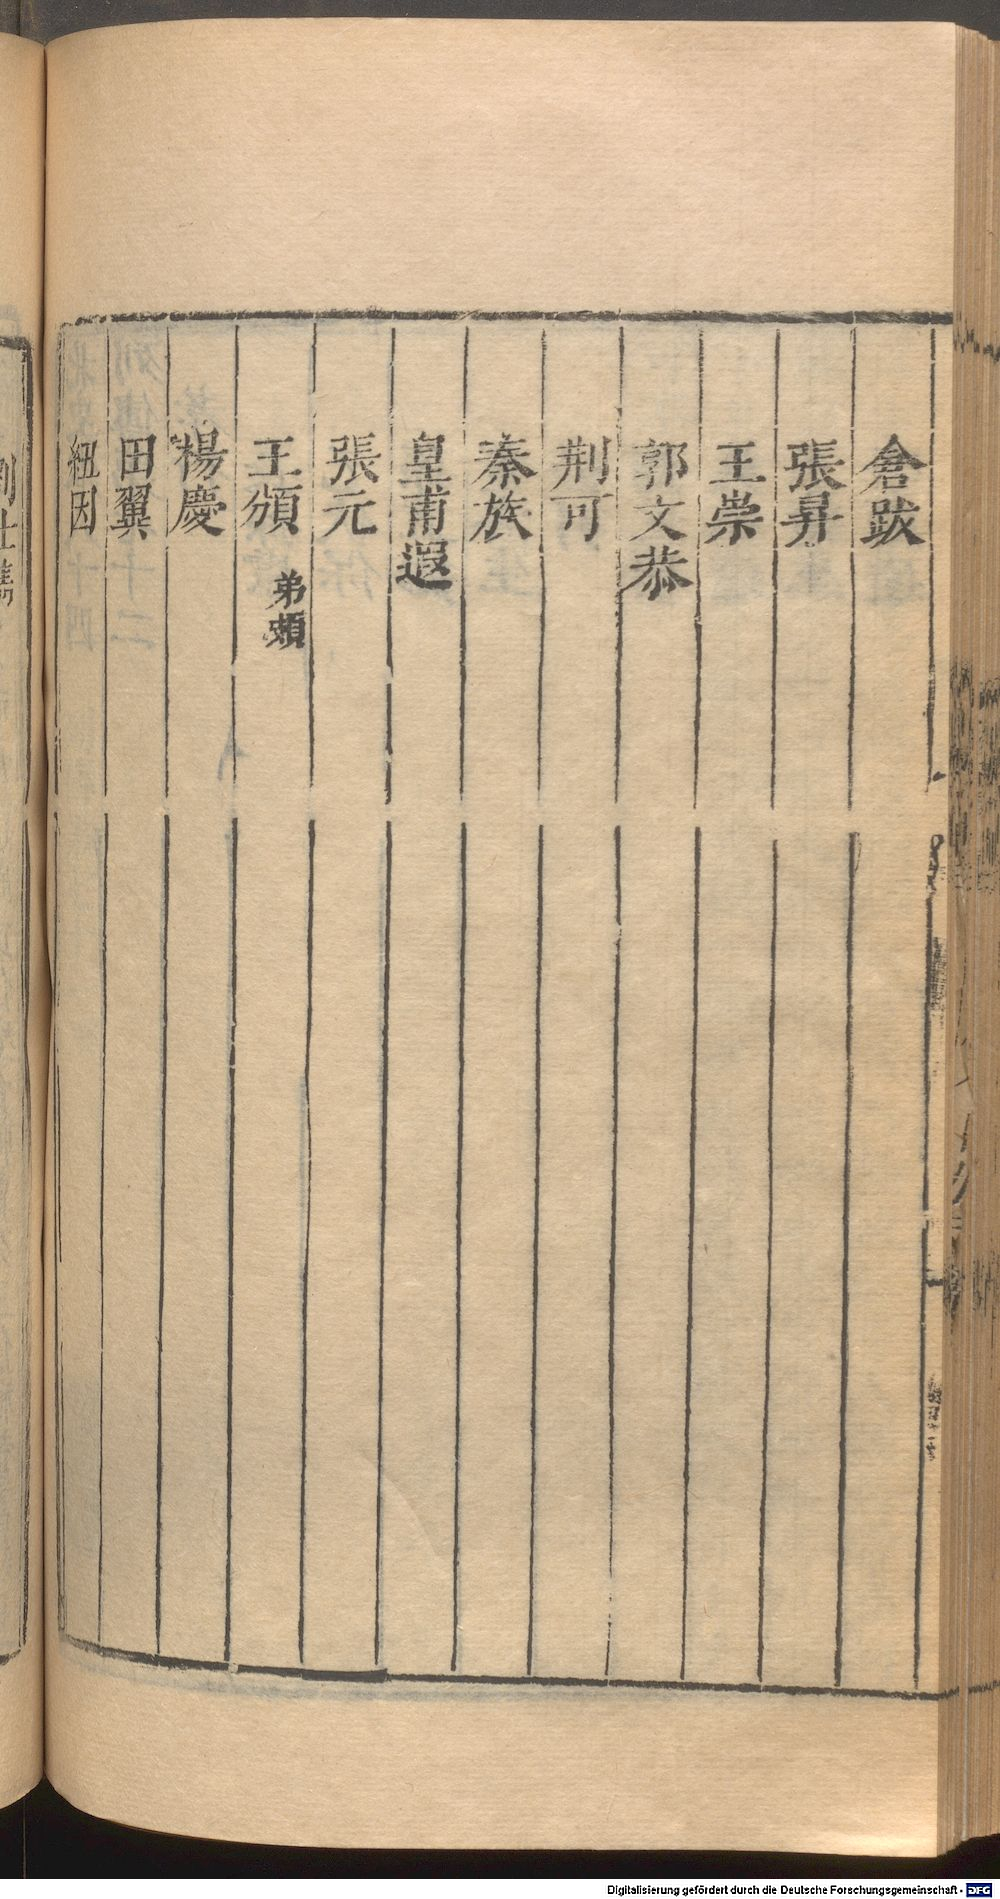 倉跋
張昇
王崇
郭文恭
荆可
秦族
皇甫遐
張元
王頒 弟頍
楊慶
田翼
紐因
Digitalisierung gefördert durch die Deutsche Forschungsgemeinschaft - DFG